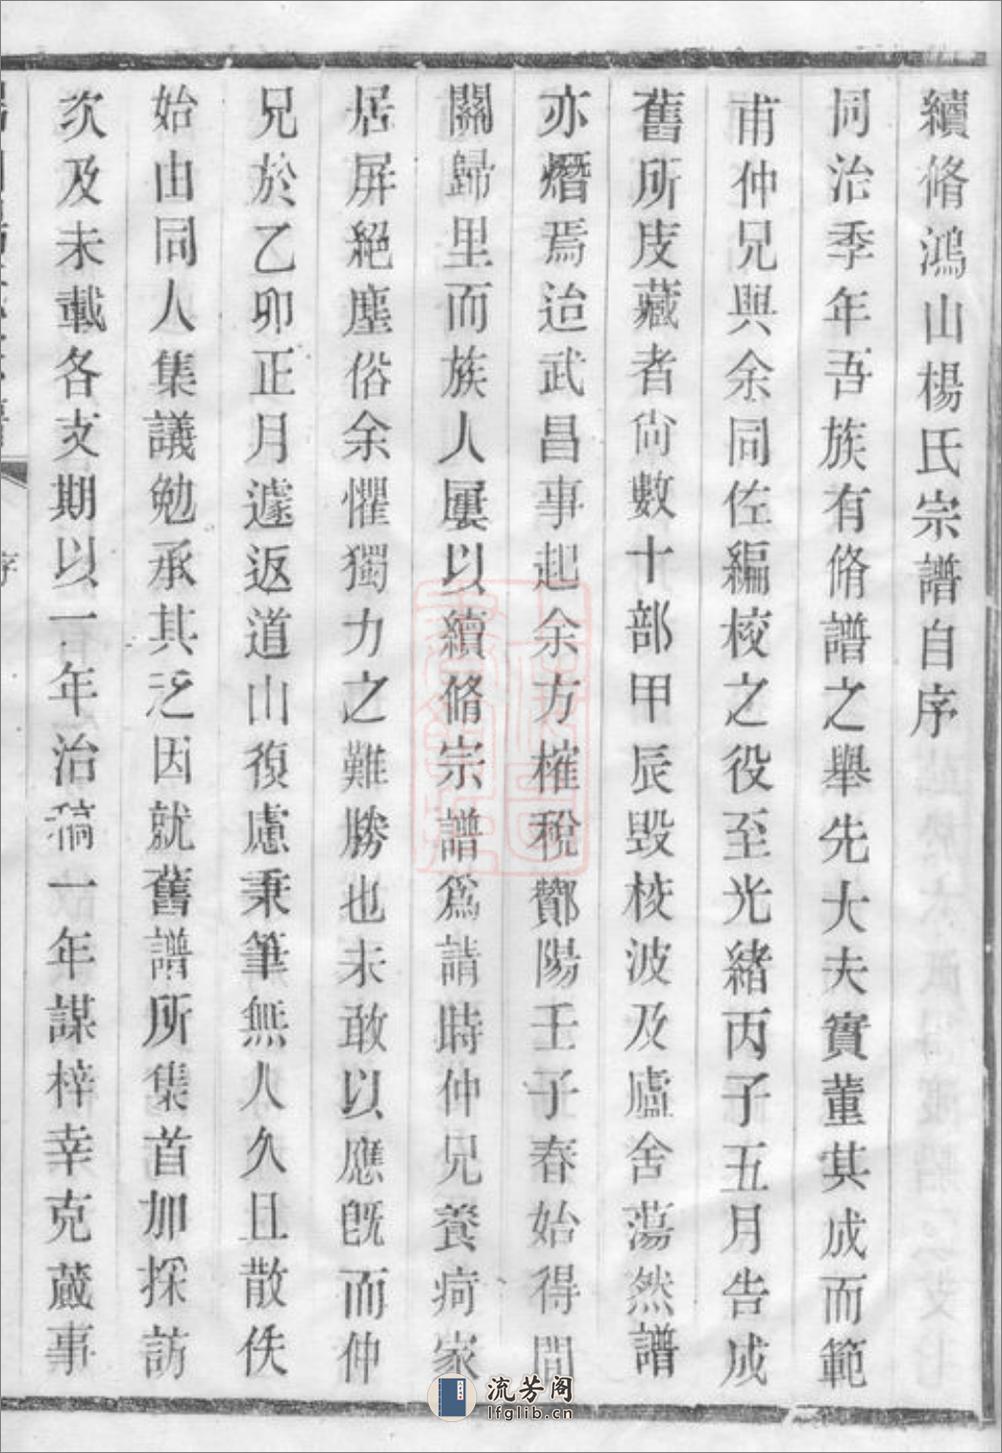 續脩鴻山楊氏宗譜自序
同治季年吾族有脩譜之舉先大夫實董其成而範
甫仲兄與余同佐編校之役至光緒丙子五月告成
舊所庋藏者尙數十部甲辰毀校波及廬舍蕩然譜
亦熸焉迨武昌事起余方榷稅酇陽壬子春始得間
關歸里而族人屢以續脩宗譜爲請時仲兄養疴家
居屏絕塵俗余懼獨力之難勝也未敢以應旣而仲
兄於乙卯正月遽返道山復慮秉筆無人久且散佚
始由同人集議勉承其乏因就舊譜所集首加採訪
次及未載各支期以一年治稿一年謀梓幸克蕆事
序
流芳阁
lfglib.cn